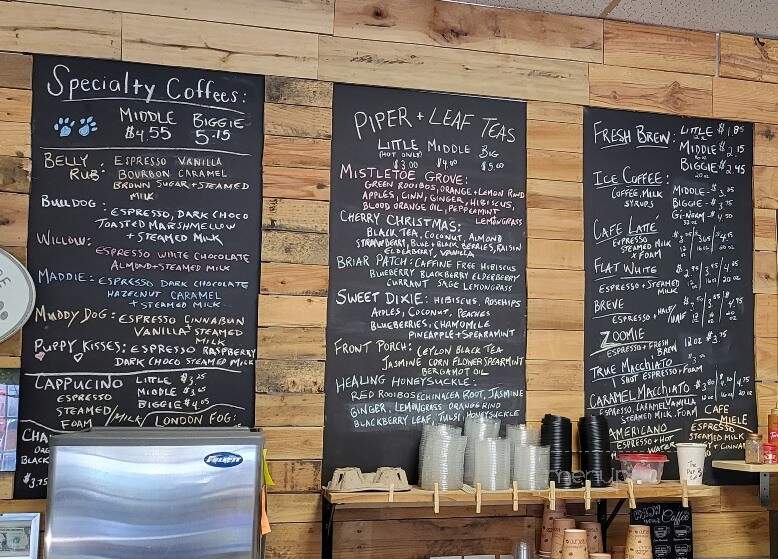 Specialty Coffees:
Middle Biggie
$4.55 5.15
Belly Rub: Espresso Vanilla
Bourbon Caramel
Brown Sugar + Steamed
Milk
Bulldog:
Espresso, Dark Choco
Toasted Marshmellow
+ Steamed Milk
Willow:
Espresso White Chocolate
Almond + Steamed Milk
Maddie: Espresso Dark Chocolate
Hazelnut Caramel
+ Steamed Milk
Muddy Dog: Espresso Cinnabun
Vanilla + Steamed
Milk
Puppy Kisses: Espresso Raspberry
Dark Choco Steamed Milk
Cappucino Little $3.25
Espresso Middle $3.65
Steamed Biggie $4
Foam / Milk / London Fog:
Cha
Black
$3.75
Piper + Leaf Teas
Little Middle Big
(Hot Only)
$3.00 $4.00 $5.00
Mistletoe Grove:
Green Rooibos, Orange + Lemon Rind
Apples, Cinn, Ginger, Hibiscus,
Blood Orange Oil, Peppermint
Lemongrass
Cherry Christmas:
Black Tea, Coconut, Almond
Strawberry, Blue + Black Berries, Raisin
Elderberry, Vanilla
Briar Patch: Caffine Free Hibiscus
Blueberry Blackberry Elderberry
Currant Sage Lemongrass
Sweet Dixie: Hibiscus, Rosehips
Apples, Coconut, Peaches
Blueberries, Chamomile
Pineapple + Spearamint
Front Porch: Ceylon Black Tea
Jasmine Corn Flower Spearmint
Bergamot Oil
Healing Honeysuckle:
Red Rooibos Echinacea Root, Jasmine
Ginger, Lemongrass, Orange Rind
Blackberry Leaf, Tulsi Honeysuckle
Fresh Brew: Little $1.85
Middle $2.15
Biggie $2.45
20 oz
Ice Coffee:
Coffee, Milk Middle - $3.25
Syrups Biggie - $3.75
Gi-Norm - $4.50
Cafe Laté
Espresso
Steamed Milk
+ Foam
Flat White
Espresso + Steamed
Milk
Breve
Espresso + Half/
Half
Zoomie
Espresso + Fresh
Brew 12oz $3.75
True Macchiato
1 Shot Espresso + Foam
Caramel Macchiato
Espresso, Caramel Vanilla
Steamed Milk, Foam
Americano
Espresso + Hot
Water
Cafe
Miele
Espresso
Steamed Milk
+ Cinnam
Follett
Coffee